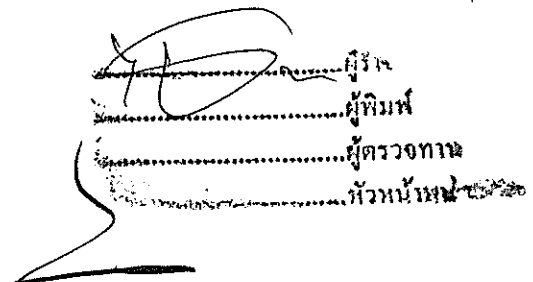 ....................ผู้ร่าง
....................ผู้พิมพ์
....................ผู้ตรวจทาน
....................หัวหน้า